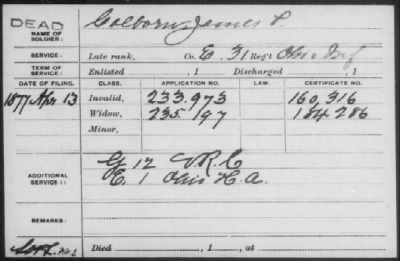 DEAD
NAME OF SOLDIER: Golborn, James P.
SERVICE: Late rank, Co. E, 31 Reg't Ohio Inf
TERM OF SERVICE: Enlisted , 1 Discharged , 1
DATE OF FILING. CLASS. APPLICATION NO. LAW. CERTIFICATE NO.
1877 Apr 13 Invalid, 233,973 160,316
Widow, 235,197 184,286
Minor,
ADDITIONAL SERVICE: G 12 V.R.C
E. 1 Ohio H.A.
REMARKS:
Died , 1 , at